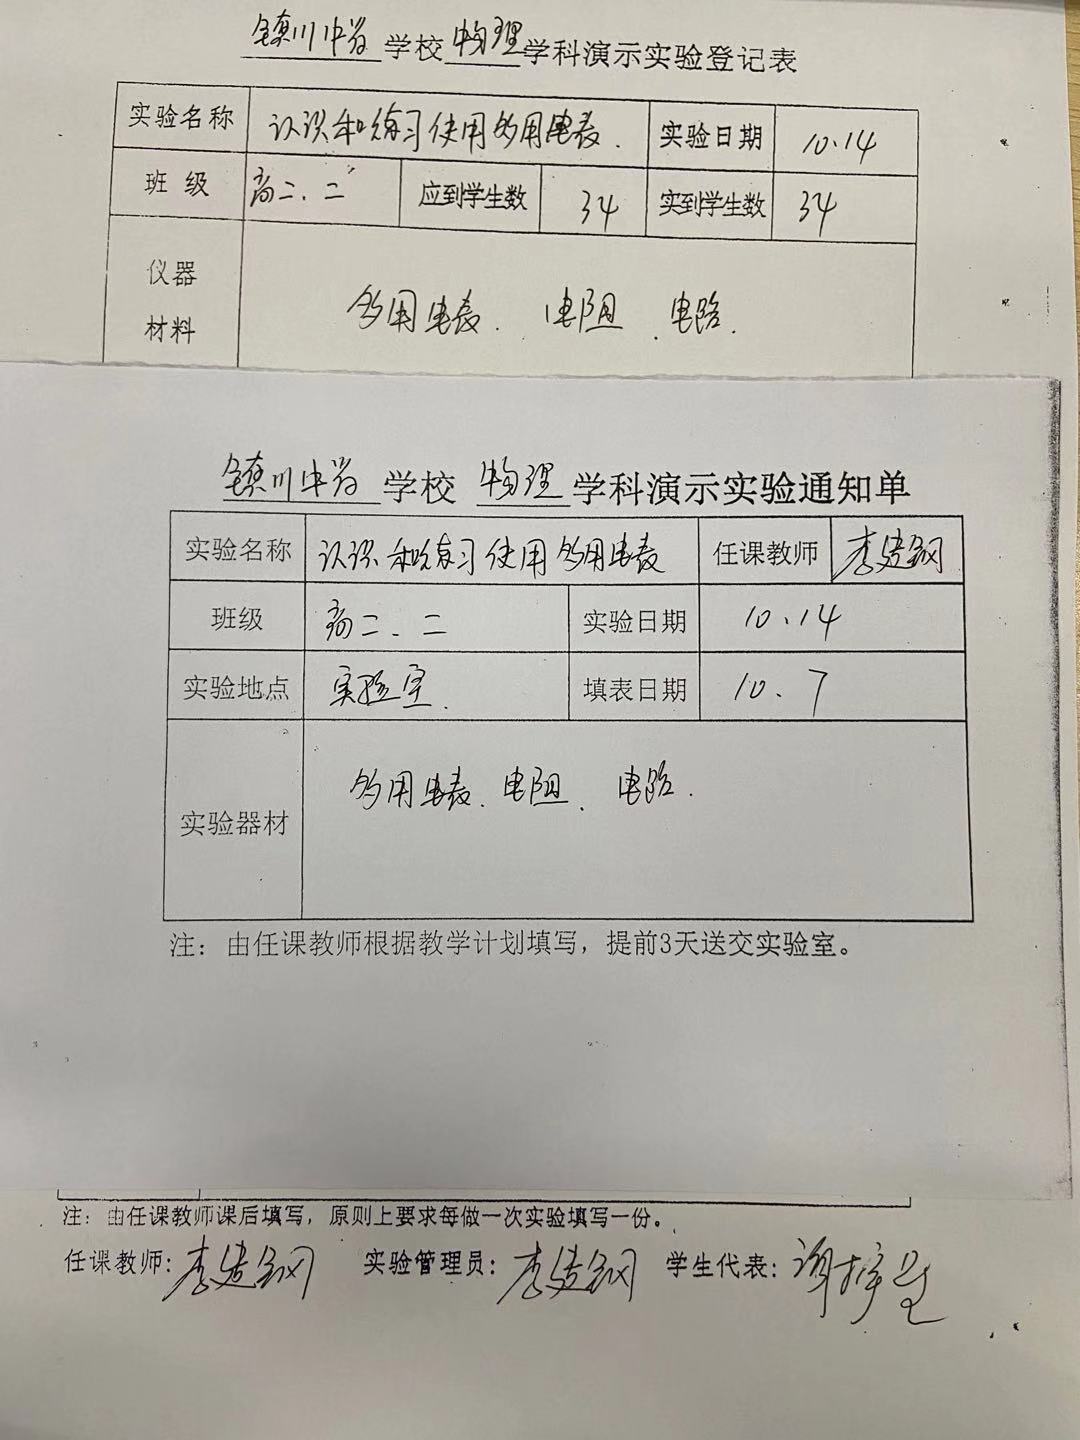 镇川中学 学校 物理 学科演示实验登记表
实验名称 认识和练习使用多用电表. 实验日期 10.14
班 级 高二、二 应到学生数 34 实到学生数 34
仪器
材料
多用电表. 电阻 . 电路.
镇川中学 学校 物理 学科演示实验通知单
实验名称 认识和练习使用多用电表 任课教师 李建钢
班级 高二、二 实验日期 10.14
实验地点 实验室. 填表日期 10.7
实验器材 多用电表. 电阻 . 电路.
注：由任课教师根据教学计划填写，提前3天送交实验室。
注：由任课教师课后填写，原则上要求每做一次实验填写一份。
任课教师：李建钢 实验管理员：李建钢 学生代表：谢